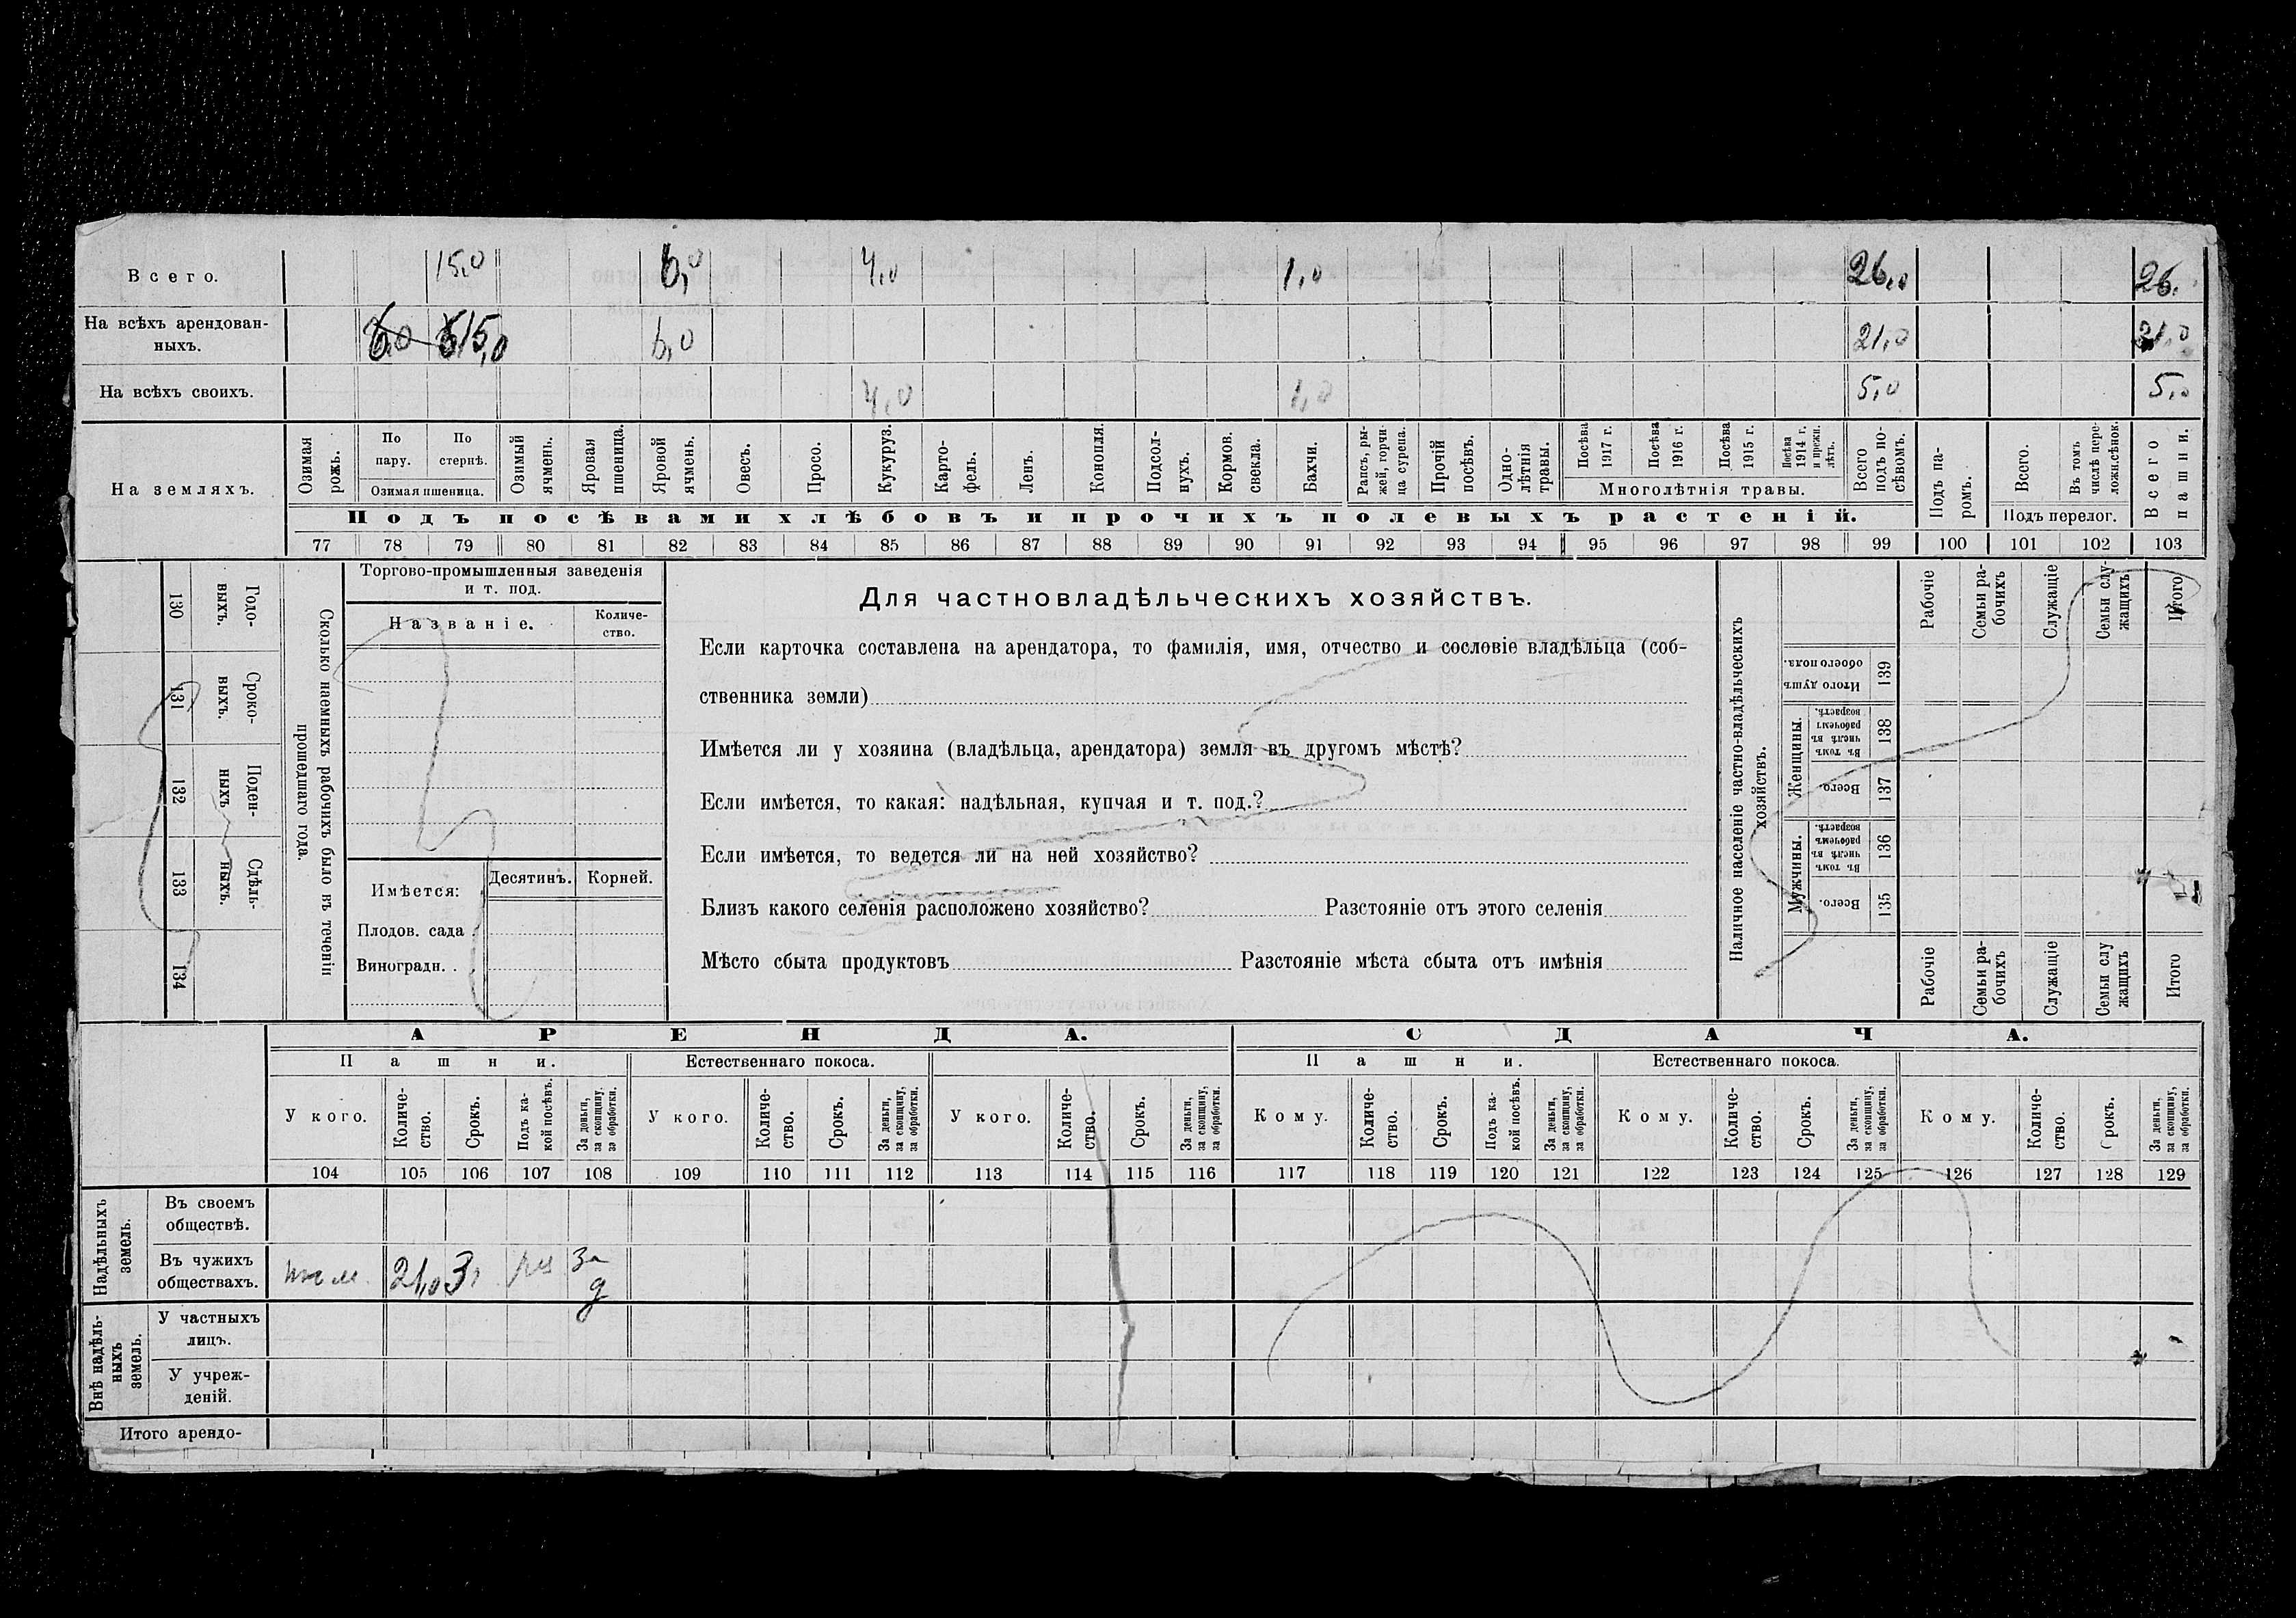 Всего. 15,0 6,0 4,0 1,0 26,0 26.
На всѣхъ арендован-
ныхъ. 6,0 6 15,0 6,0 21,0 21,0
На всѣхъ своихъ. 4,0 1,0 5,0 5,0
На земляхъ.
Озимая рожь.
По пару.
По стернѣ.
Озимая пшеница.
Озимый ячмень.
Яровая пшеница.
Яровой ячмень.
Овесъ.
Просо.
Кукуруз.
Карто-
фель.
Ленъ.
Конопля.
Подсол-
нухъ.
Кормов.
свекла.
Бахчи.
Рапсъ, ры-
жей, горчи-
ца сурепа.
Прочій
посѣвъ.
Одно-
лѣтнія
травы.
Посѣва
1917 г.
Посѣва
1916 г.
Посѣва
1915 г.
Посѣва
1914 г.
и прежн.
лѣтъ.
Многолѣтнія травы.
Всего
подъ по-
сѣвомъ.
Подъ па-
ромъ.
Всего.
Въ томъ
числѣ пере-
ложн.сѣнок.
Подъ перелог.
Всего
пашни.
Подъ посѣвами хлѣбовъ и прочихъ полевыхъ растеній.
77 78 79 80 81 82 83 84 85 86 87 88 89 90 91 92 93 94 95 96 97 98 99 100 101 102 103
130 Годо-
ныхъ.
131 Сроко-
выхъ.
132 Поден-
ныхъ
133 Сдѣль-
ныхъ.
134
Сколько наемныхъ рабочихъ было въ теченіи
прошедшаго года.
Торгово-промышленныя заведенія
и т. под.
Названіе.
Количе-
ство.
Имѣется: Десятинъ. Корней.
Плодов. сада
Виноградн. .
Для частновладѣльческихъ хозяйствъ.
Если карточка составлена на арендатора, то фамилія, имя, отчество и сословіе владѣльца (соб-
ственника земли)
Имѣется ли у хозяина (владѣльца, арендатора) земля въ другомъ мѣстѣ?
Если имѣется, то какая: надѣльная, купчая и т. под.?
Если имѣется, то ведется ли на ней хозяйство?
Близъ какого селенія расположено хозяйство? Разстояніе отъ этого селенія
Мѣсто сбыта продуктовъ Разстояніе мѣста сбыта отъ имѣнія
Наличное населеніе частно-владѣльческихъ
хозяйствъ.
Итого душъ
обоего пола. 139
Женщины.
Въ томъ
числѣ въ
рабочемъ
возрастѣ. 138
Всего. 137
Мужчины.
Въ томъ
числѣ въ
рабочемъ
возрастѣ. 136
Всего. 135
Рабочіе
Семьи ра-
бочихъ
Служащіе
Семьи слу-
жащихъ
Итого
Рабочіе
Семьи ра-
бочихъ
Служащіе
Семьи слу
жащихъ
Итого
АРЕНДА. СДАЧА.
Пашни. Естественнаго покоса. Пашни. Естественнаго покоса.
У кого.
Количе-
ство.
Срокъ.
Подъ ка-
кой посѣвъ.
За деньги,
за скопщину,
за обработки.
У кого.
Количе-
ство.
Срокъ.
За деньги,
за скопщину,
за обработки.
У кого.
Количе-
ство.
Срокъ.
За деньги,
за скопщину,
за обработки.
Кому.
Количе-
ство.
Срокъ.
Подъ ка-
кой посѣвъ.
За деньги,
за скопщину,
за обработки.
Кому.
Количе-
ство.
Срокъ.
За деньги,
за скопщину,
за обработки.
Кому.
Количе-
ство.
Срокъ.
За деньги,
за скопщину,
за обработки.
104 105 106 107 108 109 110 111 112 113 114 115 116 117 118 119 120 121 122 123 124 125 126 127 128 129
Надѣльныхъ
земель.
Въ своемъ
обществѣ.
Въ чужихъ
обществахъ. 21,0 3 За
д
Внѣ надѣль-
ныхъ
земель.
У частныхъ
лицъ.
У учреж-
деній.
Итого арендо-